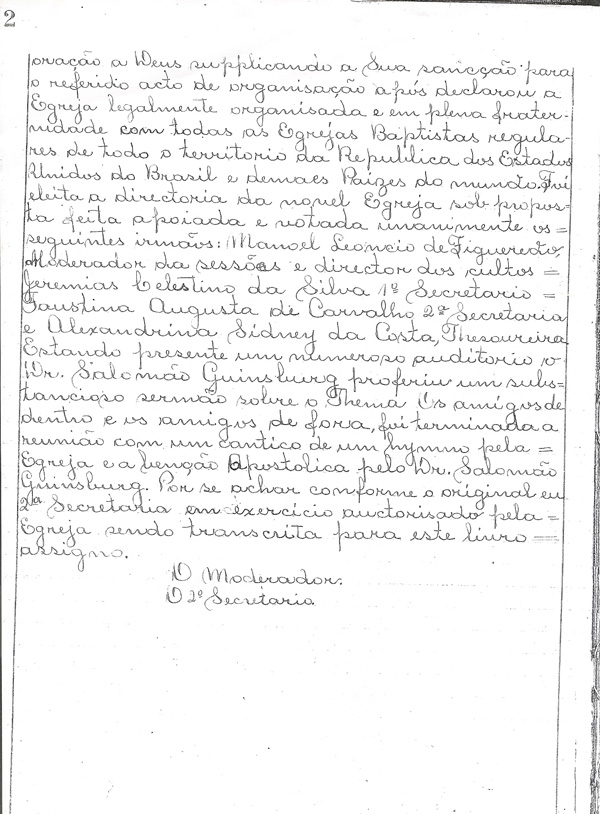 2
oração a Deus supplicando a Sua sancção para
o referido acto de organisação após declarou a
Egreja legalmente organisada e em plena frater-
nidade com todas as Egrejas Baptistas regula-
res de todo o territorio da Republica dos Estados
Unidos do Brasil e demaes Paizes do mundo. Foi
eleita a directoria da novel Egreja sob propos-
ta feita apoiada e votada unanimente os=
seguintes irmãos: Manoel Leoncio de Figueredo,
Moderador da sessões e director dos cultos=
Jeremias Celestino da Silva 1º Secretario=
Faustina Augusta de Carvalho 2ª Secretaria
e Alexandrina Sidney da Costa, Thesoureira
Estando presente um numeroso auditorio o
Dr. Salomão Guinsburg proferiu um subs=
tancioso sermão sobre o Thema Os amigos de
dentro e os amigos de fora, foi terminada a
reunião com um cantico de um hymno pela=
Egreja e a benção Apostolica pelo Dr. Salomão
Guinsburg. Por se achar conforme o original eu
2ª Secretaria em exercício auctorisado pela=
Egreja sendo transcrita para este livro=
assigno.
O Moderador.
O 2º Secretaria